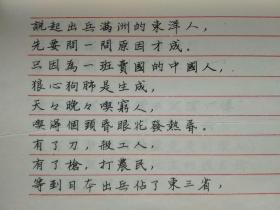 說起出兵滿洲的東洋人，
先要問一問原因才成。
只因為一班賣國的中國人，
狼心狗肺是生成，
天々晚々喫窮人，
喫得個頭昏眼花發熱昏。
有了刀，殺工人，
有了槍，打農民，
等到日本出兵佔了東三省，